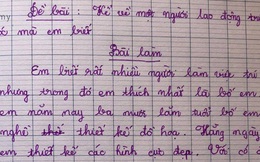 Đề bài : Kể về một người lao động trí
óc mà em biết
Bài làm
Em biết rất nhiều người làm việc trí
nhưng trong đó em thích nhất là bố em
em năm nay ba mươi lăm tuổi bố em
nghề thiết kế đồ họa. Hằng ngày
em thiết kế các hình cực đẹp. Với cô